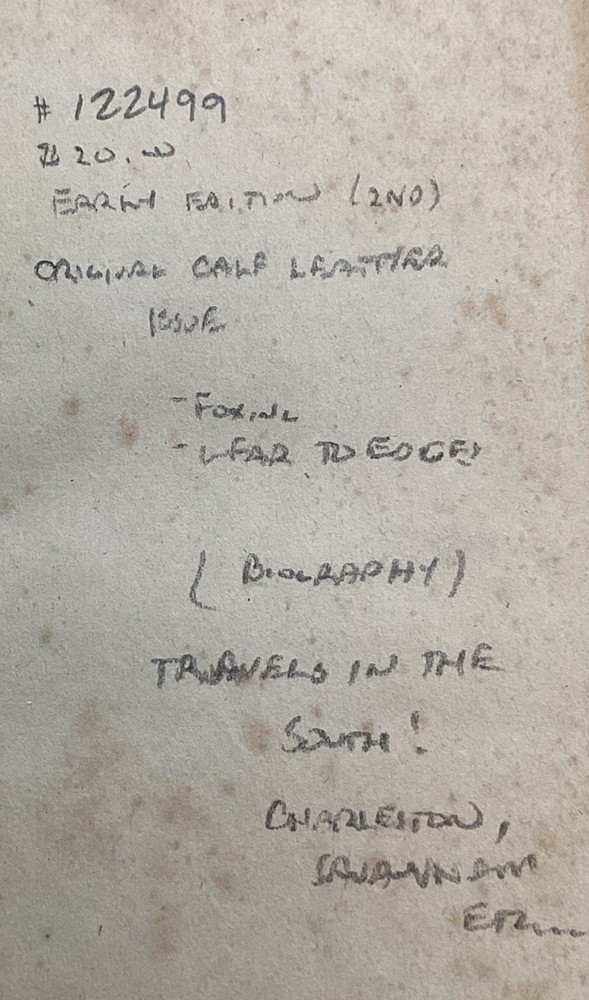 # 122499
$20.00
EARLY EDITION (2ND)
ORIGINAL CALF LEATHER
ISSUE
- FOXING
- WEAR TO EDGES
(BIOGRAPHY)
TRAVELS IN THE
SOUTH!
CHARLESTON,
SAVANNAH
ETC...